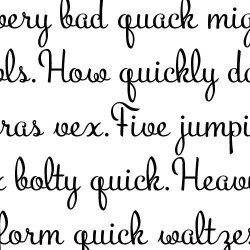 very bad quack mig
ols. How quickly da
ras vex. Five jumpi
x bolty quick. Heav
form quick waltzes